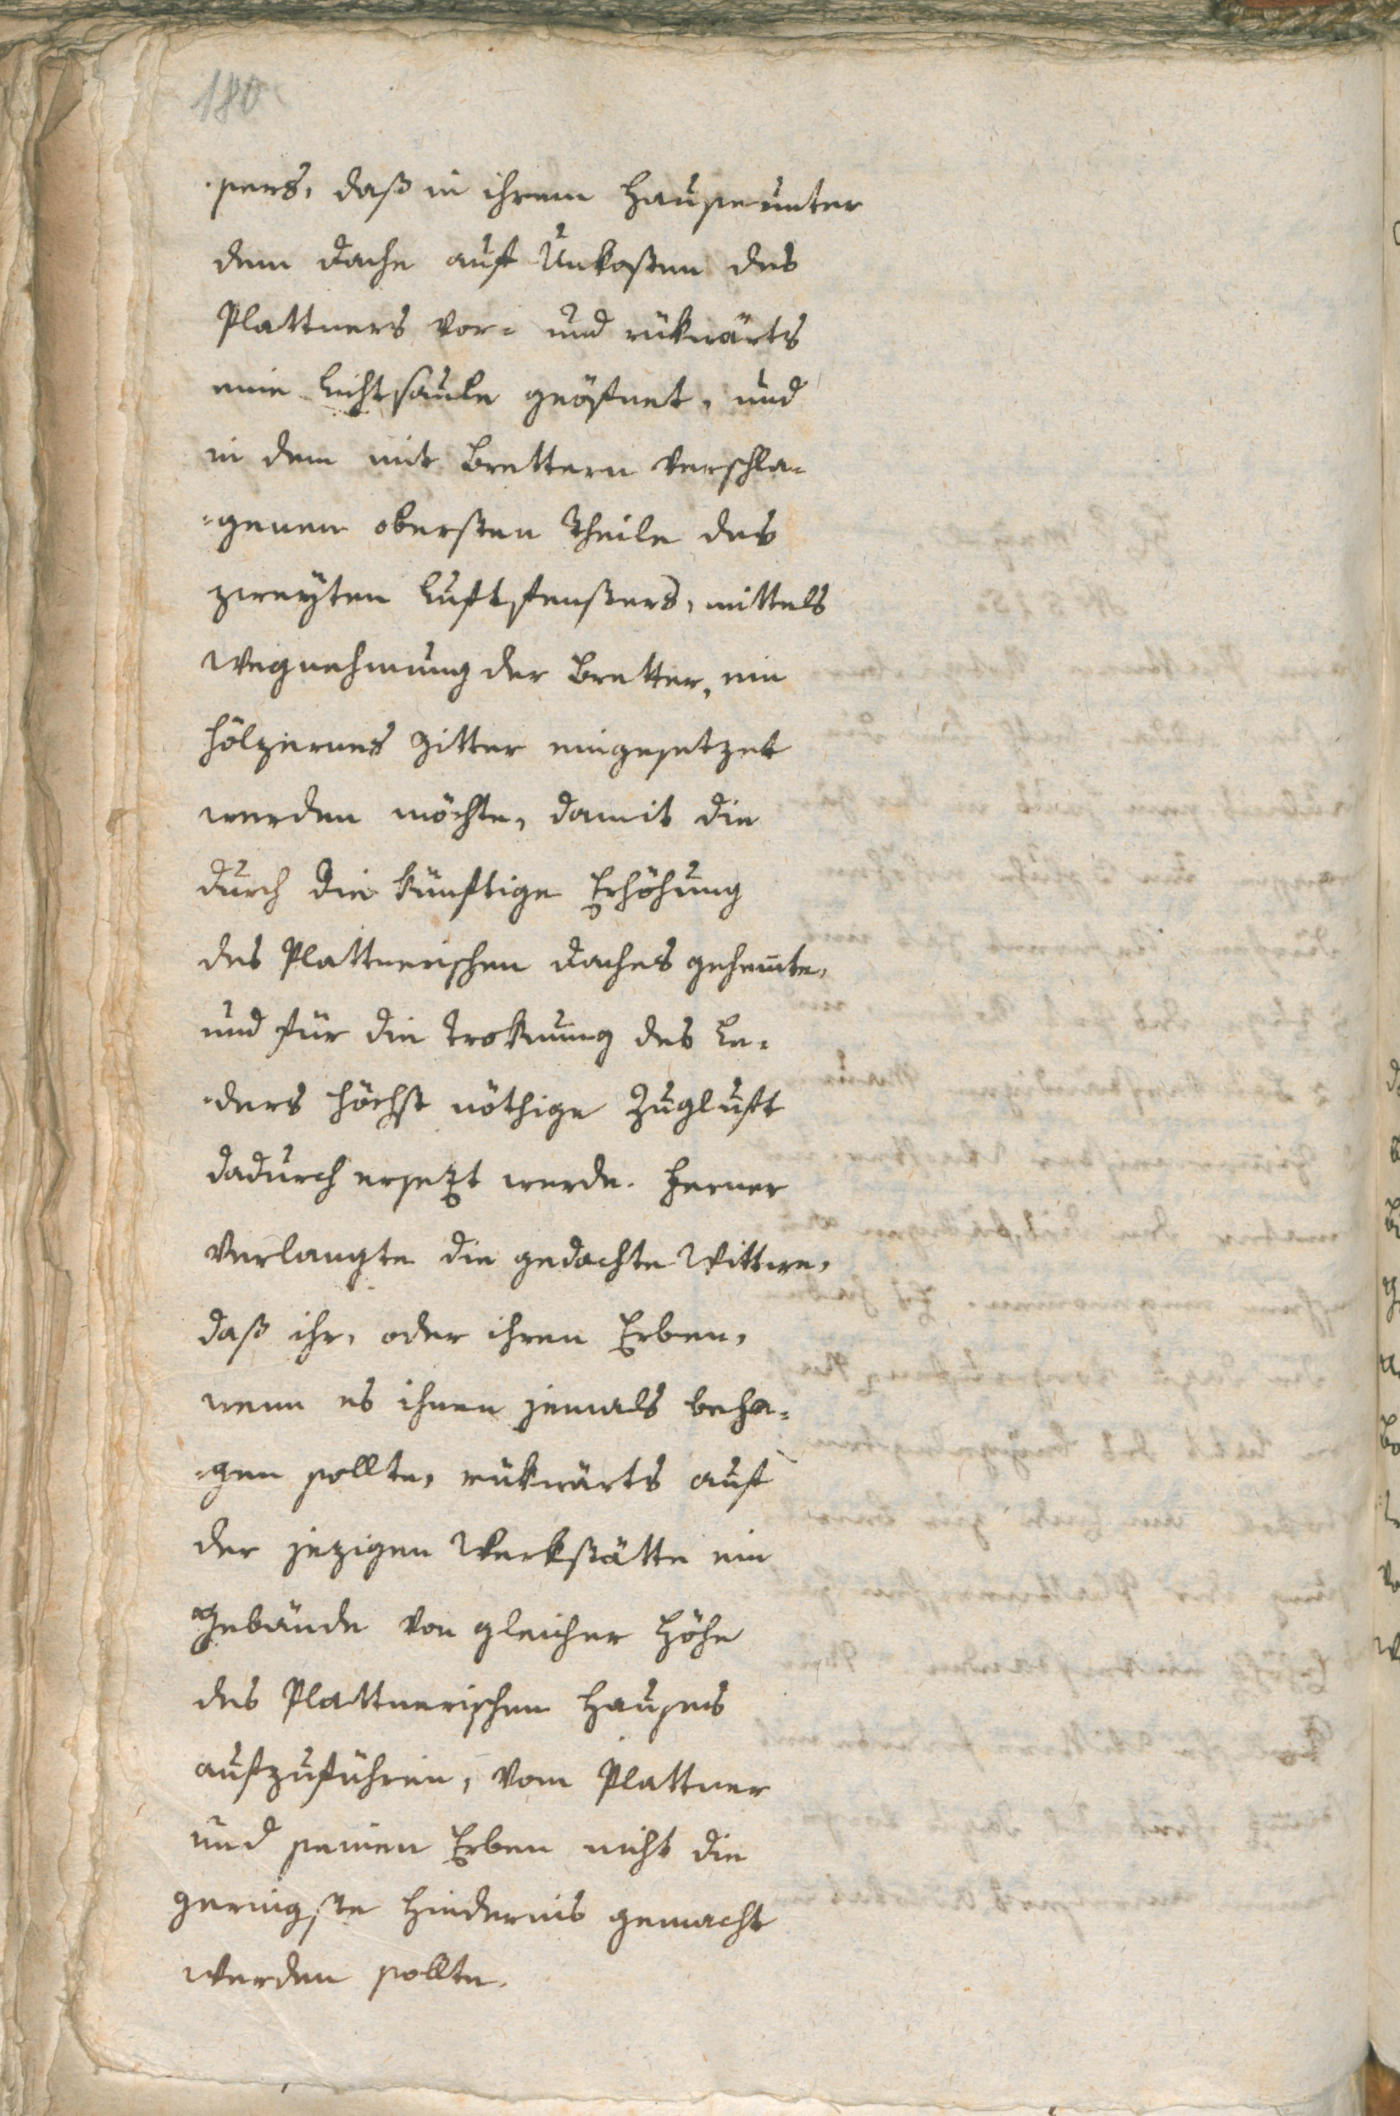 180
sers, daß in ihrem Hause unter
dem Dache auf Unkosten des
Plattners vor- und rükwärts
eine Lichtsaule geöfnet, und
in dem mit Brettern verschla-
-genen obersten Theile des
zweyten Luftfensters, mittels
Wegnehmung der Bretter, ein
hölzernes Gitter eingesetzet
werden möchte, damit die
durch die künftige Erhöhung
des Plattnerischen Daches gehem̄te,
und für die Troknung des Le-
-ders höchst nöthige Zugluft
dadurch ersezt werde. Ferner
verlangte die gedachte Wittwe,
daß ihr, oder ihren Erben,
wenn es ihnen jemals beha-
-gen sollte, rükwärts auf
der jezigen Werkstätte ein
Gebäude von gleicher Höhe
des Plattnerischen Hauses
aufzuführen, vom Plattner
und seinen Erben nicht die
geringste Hindernis gemacht
werden sollte.